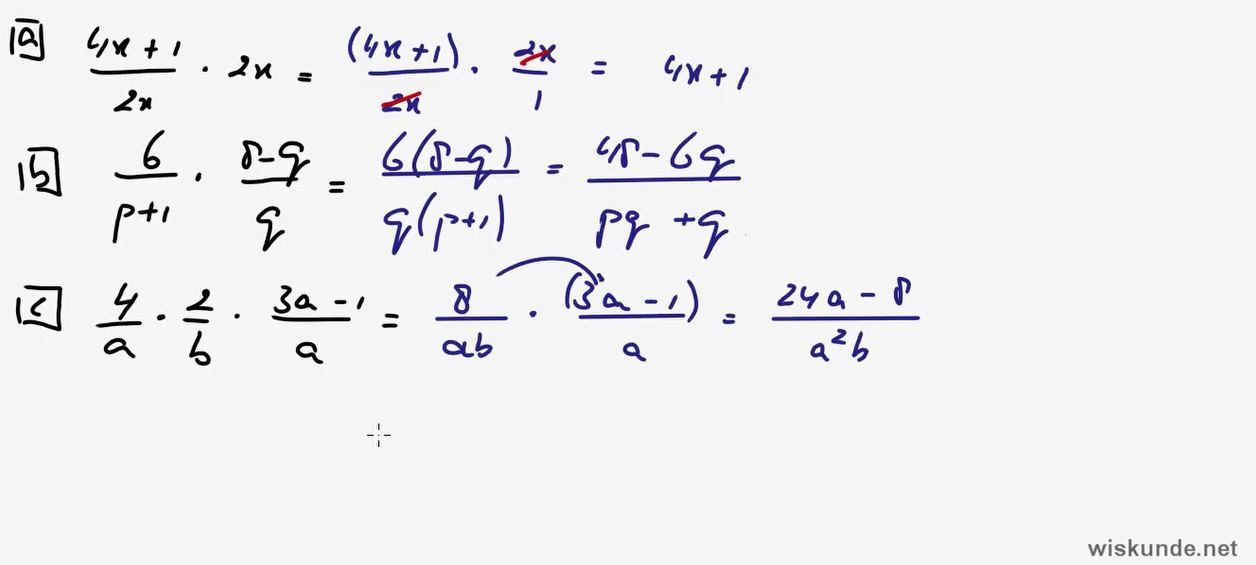 a (4x+1)/(2x) · 2x = (4x+1)/(2x) · 2x/1 = 4x+1
b 6/(p+1) · (8-q)/q = 6(8-q)/(q(p+1)) = (48-6q)/(pq+q)
c 4/a · 2/b · (3a-1)/a = 8/(ab) · (3a-1)/a = (24a-8)/(a²b)
wiskunde.net